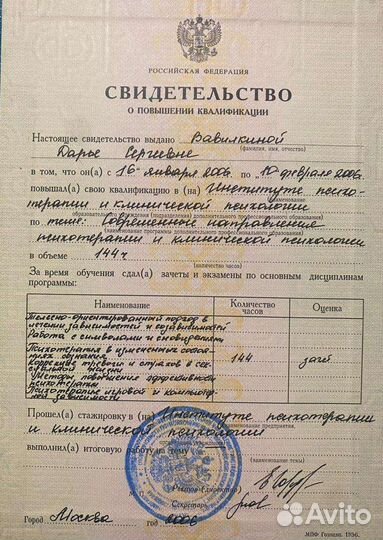 РОССИЙСКАЯ ФЕДЕРАЦИЯ
СВИДЕТЕЛЬСТВО
О ПОВЫШЕНИИ КВАЛИФИКАЦИИ
Настоящее свидетельство выдано Вавилкиной
Дарье Сергеевне
(фамилия, имя, отчество)
в том, что он(а) с 16 января 2006 по 10 февраля 2006
повышал(а) свою квалификацию в (на) Институте психо-
(наименование
терапии и клинической психологии
образовательного учреждения (подразделения) дополнительного профессионального образования)
по теме: Современные направления
психотерапии и клинической психологии
в объеме 144 ч
(количество часов)
За время обучения сдал(а) зачеты и экзамены по основным дисциплинам
программы:
Наименование Количество часов Оценка
Телесно-ориентированный подход в
лечении зависимостей и созависимостей
Работа с символами и сновидениями
Психотерапия в измененных состоя-
ниях сознания
Коррекция тревоги и страхов в сек-
суальной жизни
Методы повышения эффективности
психотерапии
Психотерапия игровой и компьютер-
ной зависимости
144 зачёт
Прошел(а) стажировку в (на) Институте психотерапии
(наименование предприятия,
и клинической психологии
выполнил(а) итоговую работу на тему
(наименование темы)
Ректор (директор)
Секретарь
Город Москва год 2006
МПФ Гознака. 1996.
Avito